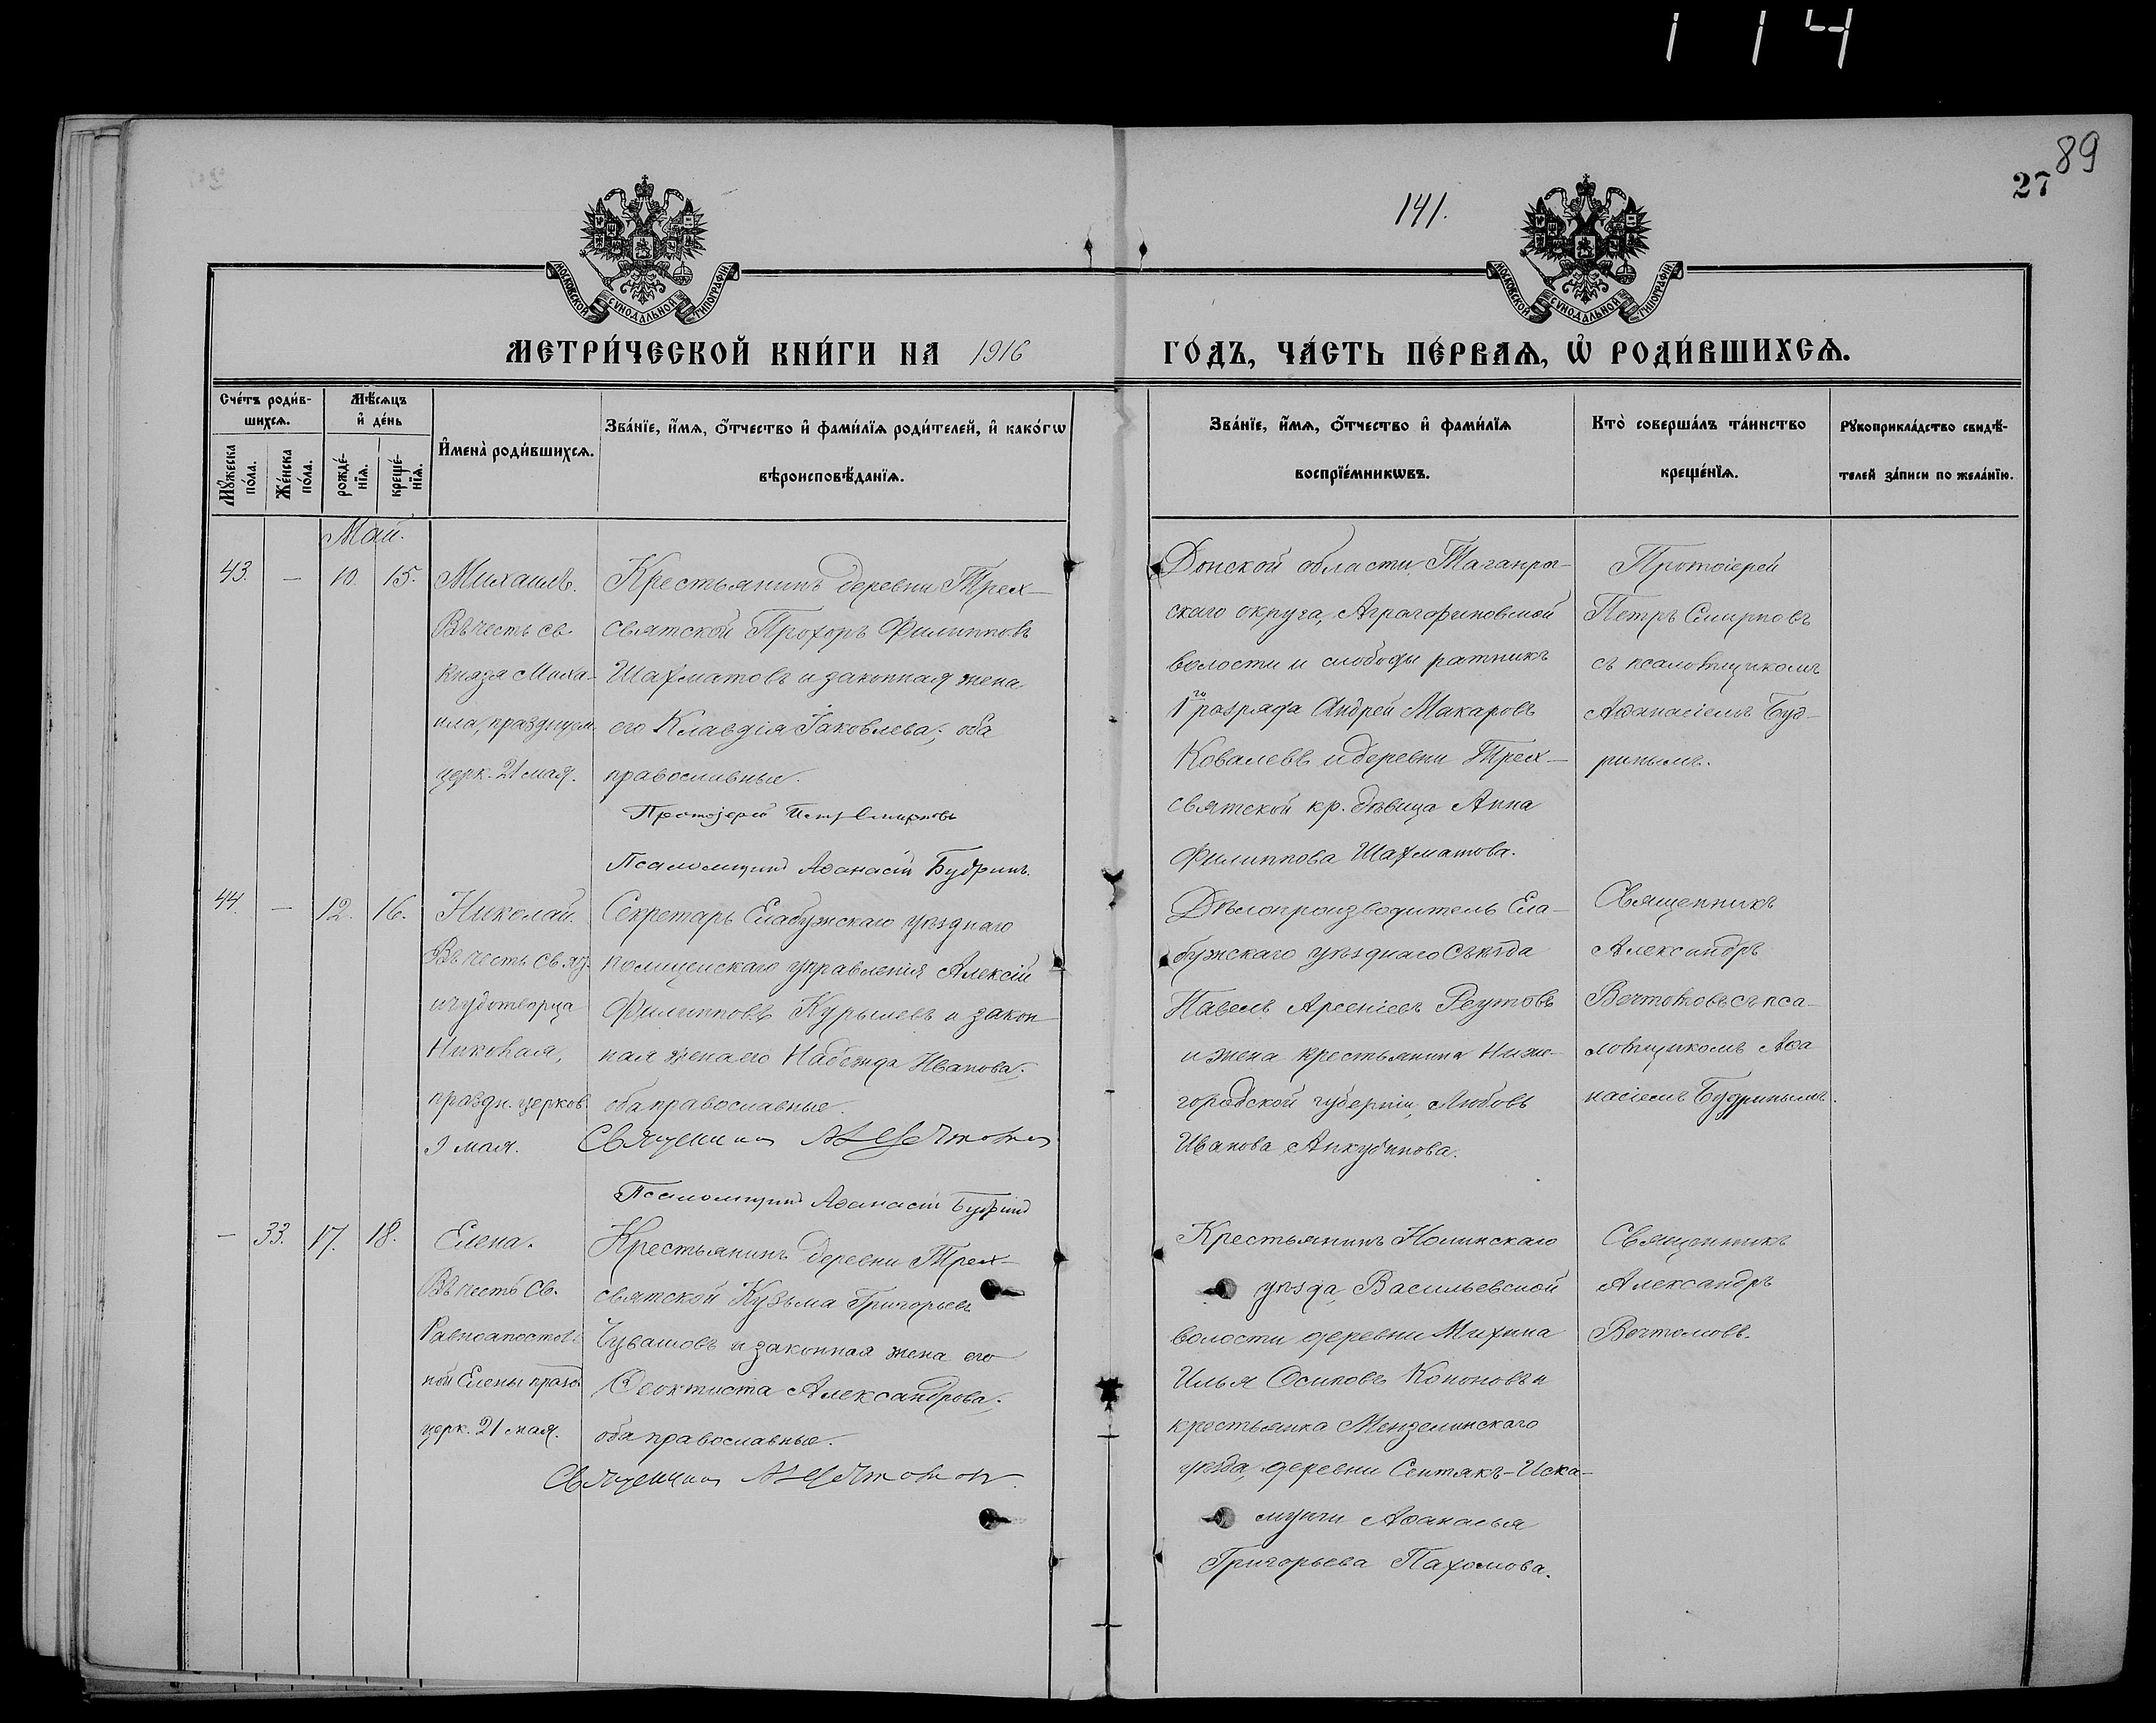 1 14
89
27
141.
МОСКОВСКОЙ СѴНОДАЛЬНОЙ ТИПОГРАФІИ
МОСКОВСКОЙ СѴНОДАЛЬНОЙ ТИПОГРАФІИ
МЕТРИ́ЧЕСКОЙ КНИ́ГИ НА 1916 ГО́ДЪ, ЧА́СТЬ ПЕ́РВАѦ, Ѡ҆ РОДИ́ВШИХСѦ.
Сче́тъ роди́в-
шихсѧ.
Мꙋ́жеска по́ла.
Же́нска по́ла.
Мѣ́сѧцъ
и҆ де́нь
рожде́-
нїѧ.
креще́-
нїѧ.
И҆мена̀ роди́вшихсѧ.
Зва́нїе, и҆́мѧ, ѻ҆́тчество и҆ фами́лїѧ роди́телей, и҆ како́гѡ
вѣроисповѣ́данїѧ.
Зва́нїе, и҆́мѧ, ѻ҆́тчество и҆ фами́лїѧ
воспрїе́мникѡвъ.
Кто̀ соверша́лъ та́инство
креще́нїѧ.
Рꙋкоприкла́дство свидѣ́-
телей за́писи по жела́нїю.
Май.
43. — 10. 15.
Михаилъ.
Въ честь св.
Князя Миха-
ила, праздн.
церк. 21 мая.
Крестьянинъ деревни Трех-
святской Прохоръ Филипповъ
Шахматовъ и законная жена
его Клавдія Іаковлева; оба
православные.
Протоіерей Петръ Смирновъ
Псаломщикъ Аѳанасій Будринъ.
Донской области, Таганрог-
скаго округа, Аграфиновской
волости и слободы ратникъ
1го разряда Андрей Макаровъ
Ковалевъ и деревни Трех-
святской кр. дѣвица Анна
Филиппова Шахматова.
Протоіерей
Петръ Смирновъ
съ псаломщикомъ
Аѳанасіемъ Буд-
ринымъ.
44. — 12. 16.
Николай.
Въ честь Св.
и чудотворца
Николая,
праздн. церков.
9 мая.
Секретарь Елабужскаго уѣзднаго
полицейскаго управленія Алексій
Филипповъ Курышевъ и закон-
ная жена его Надежда Иванова;
оба православные.
Священникъ
Псаломщикъ Аѳанасій Будринъ
Дѣлопроизводитель Ела-
бужскаго уѣзднаго Съѣзда
Павелъ Арсеніевъ Реутовъ
и жена крестьянина Ниже-
городской губерніи, Любовь
Иванова Анкудинова.
Священникъ
Александръ
Вечтомовъ съ пса-
ломщикомъ Аѳа
насіемъ Будринымъ.
— 33. 17. 18.
Елена.
Въ честь Св.
Равноапостоль-
ной Елены празд.
церк. 21 мая.
Крестьянинъ деревни Трех-
святской Кузьма Григорьевъ
Чувашовъ и законная жена его
Ѳеоктиста Александрова;
оба православные.
Священникъ
Крестьянинъ Нолинскаго
уѣзда, Васильевской
волости деревни Михина
Илья Осиповъ Кононовъ и
крестьянка Мензелинскаго
уѣзда, деревни Сентякъ-
Аѳанасья
Григорьева Пахомова.
Священникъ
Александръ
Вечтомовъ.